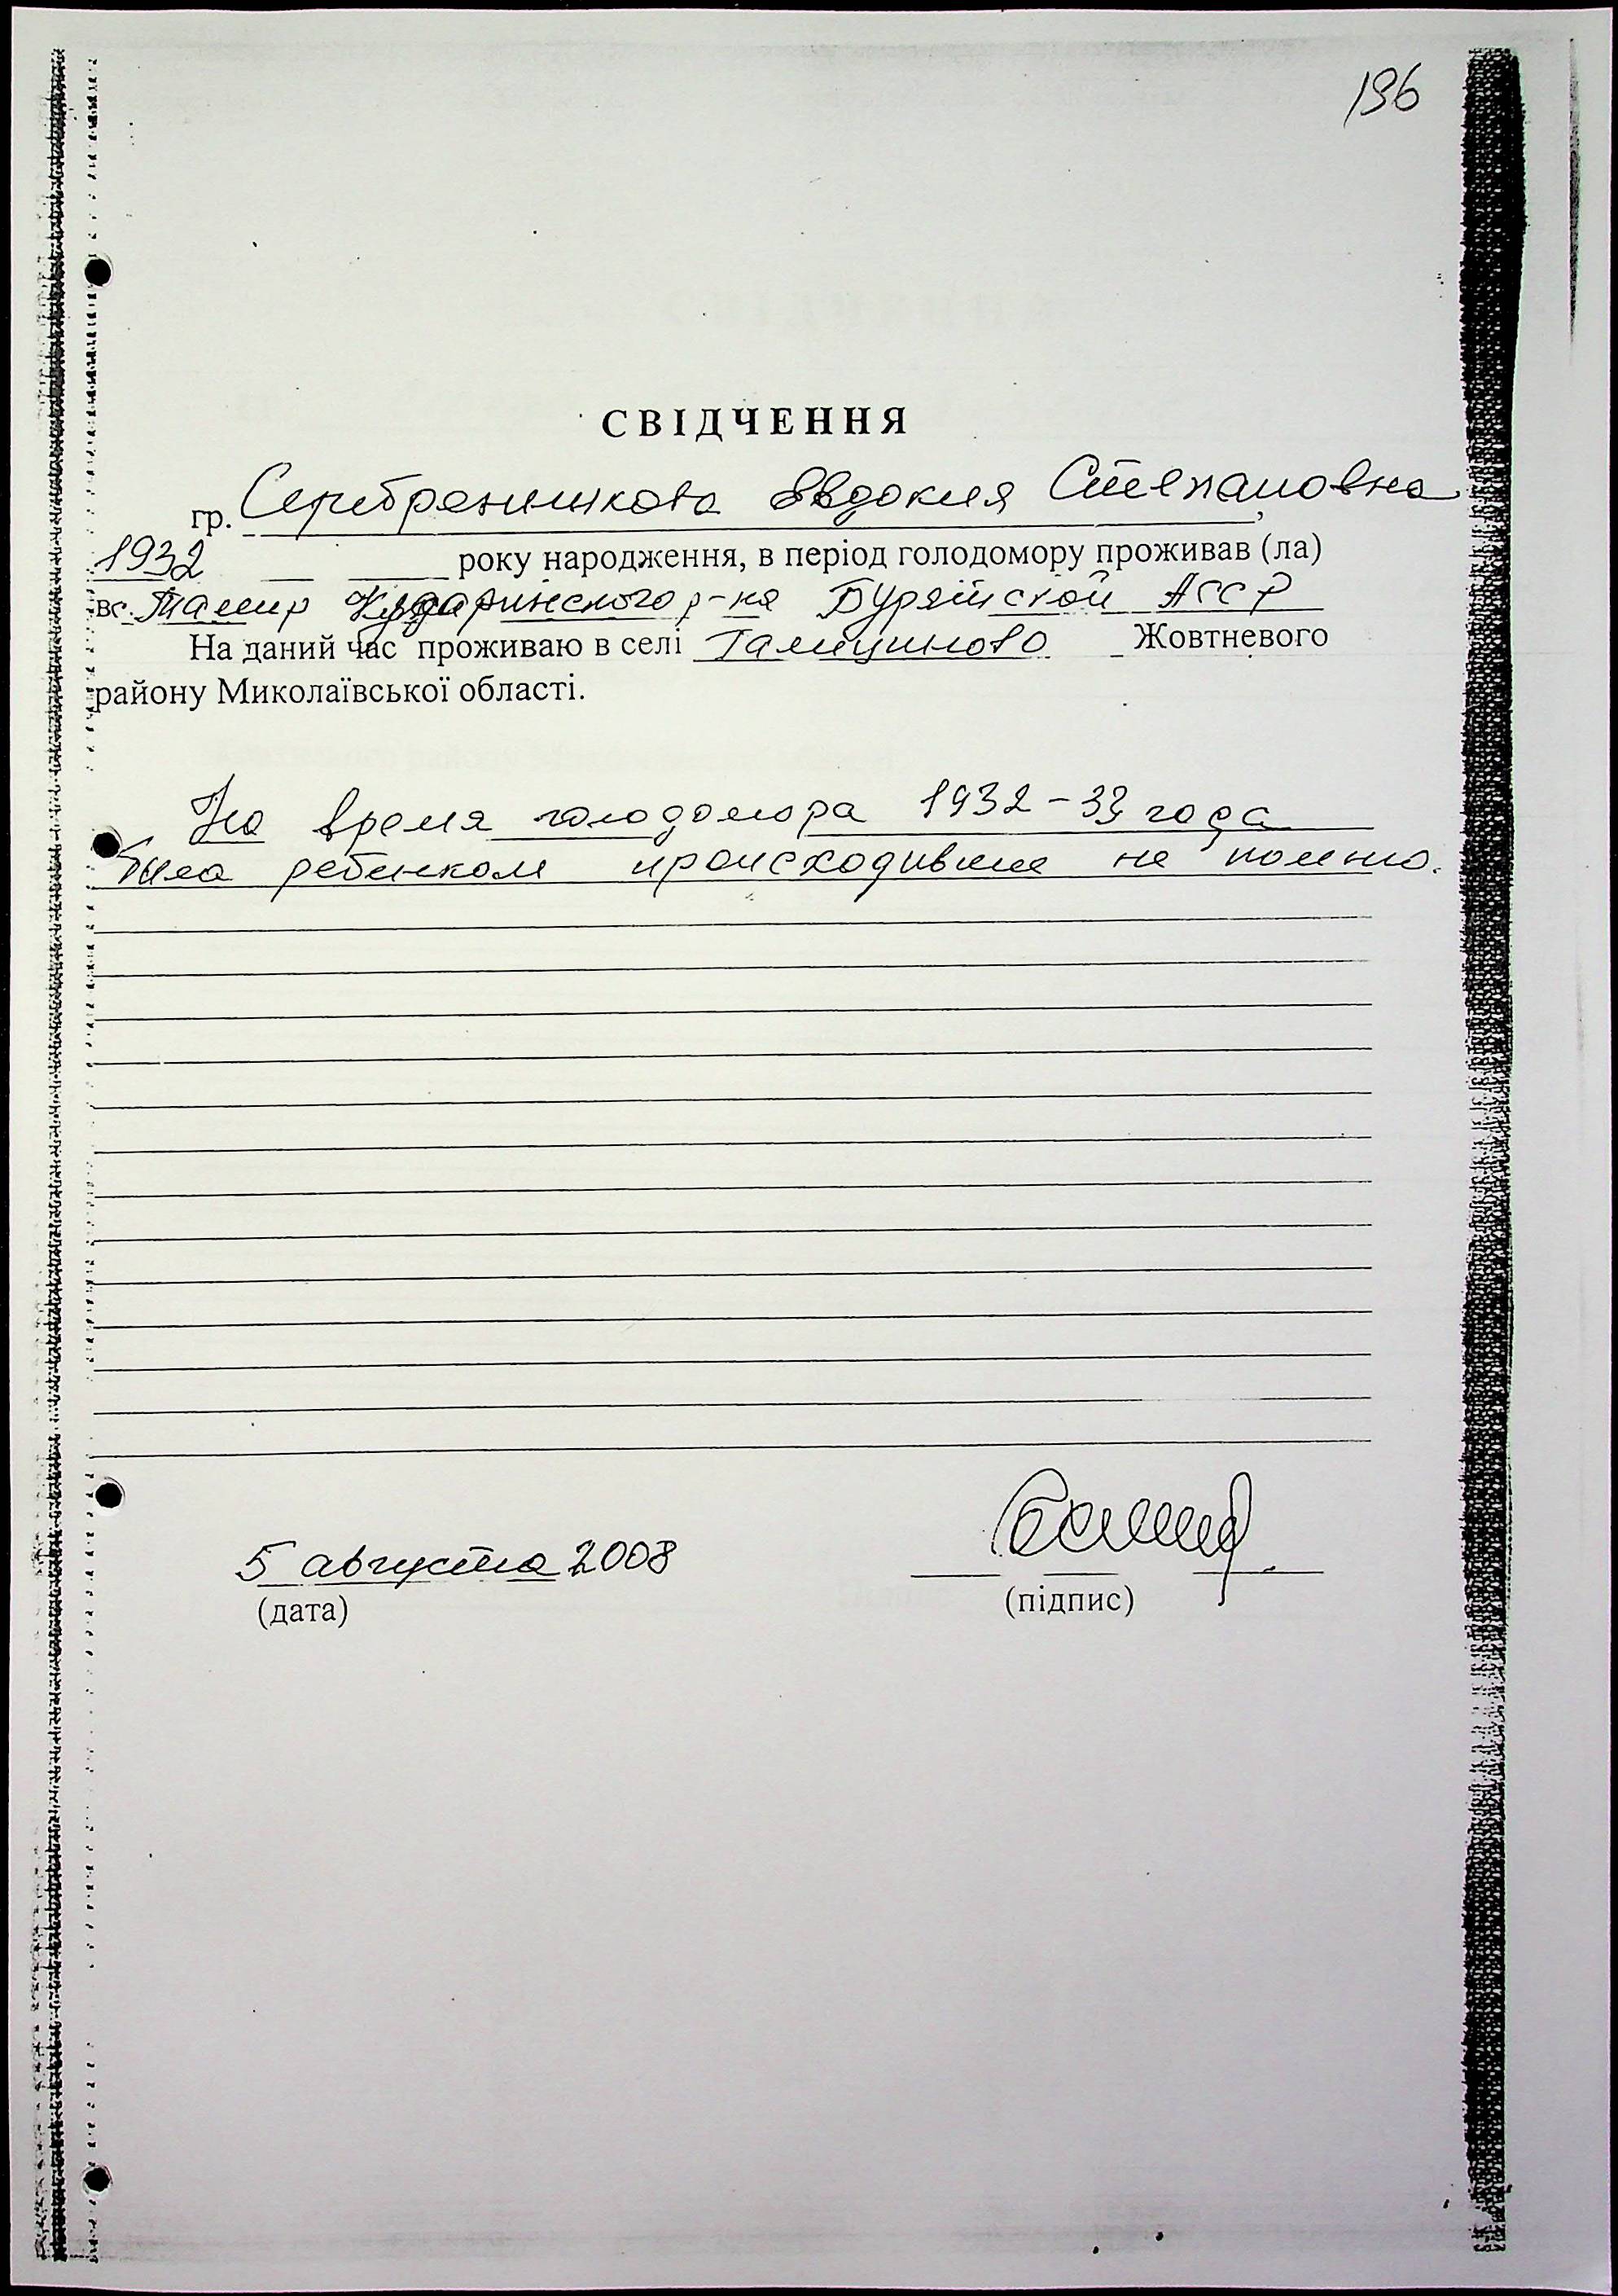 196
СВІДЧЕННЯ
гр. Серебренникова Евдокия Степановна,
1932 року народження, в період голодомору проживав (ла)
в с. Тамир Кударинского р-на Бурятской АССР
На даний час проживаю в селі Галицыново Жовтневого
району Миколаївської області.
На время голодомора 1932-33 года
была ребенком происходившее не помню.
5 августа 2008
(дата) (підпис)